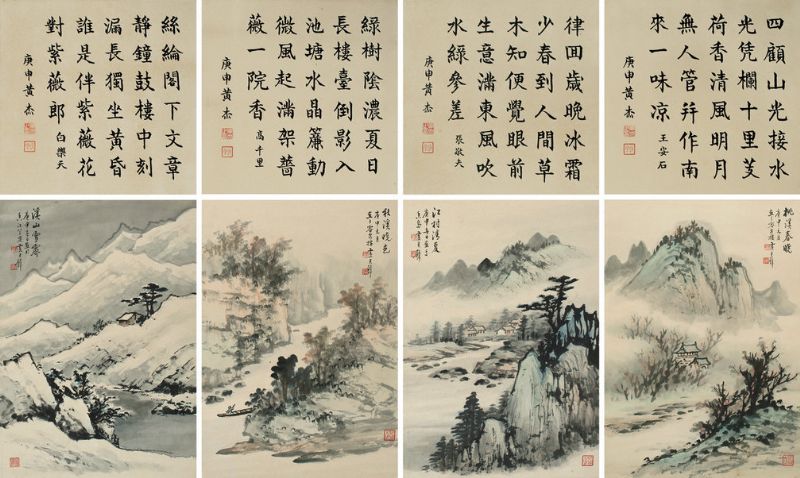 四顧山光接水
光凭欄十里芰
荷香清風明月
無人管并作南
來一味凉 王安石
庚申黄杰
律囘歲晚冰霜
少春到人間草
木知便覺眼前
生意滿東風吹
水綠參差 張敬夫
庚申黄杰
綠樹陰濃夏日
長樓臺倒影入
池塘水晶簾動
微風起滿架薔
薇一院香 高千里
庚申黄杰
絲綸閣下文章
静鐘鼓樓中刻
漏長獨坐黄昏
誰是伴紫薇花
對紫薇郎 白樂天
庚申黄杰
桃溪春曉
江村清夏
秋溪晚色
溪山雪霽